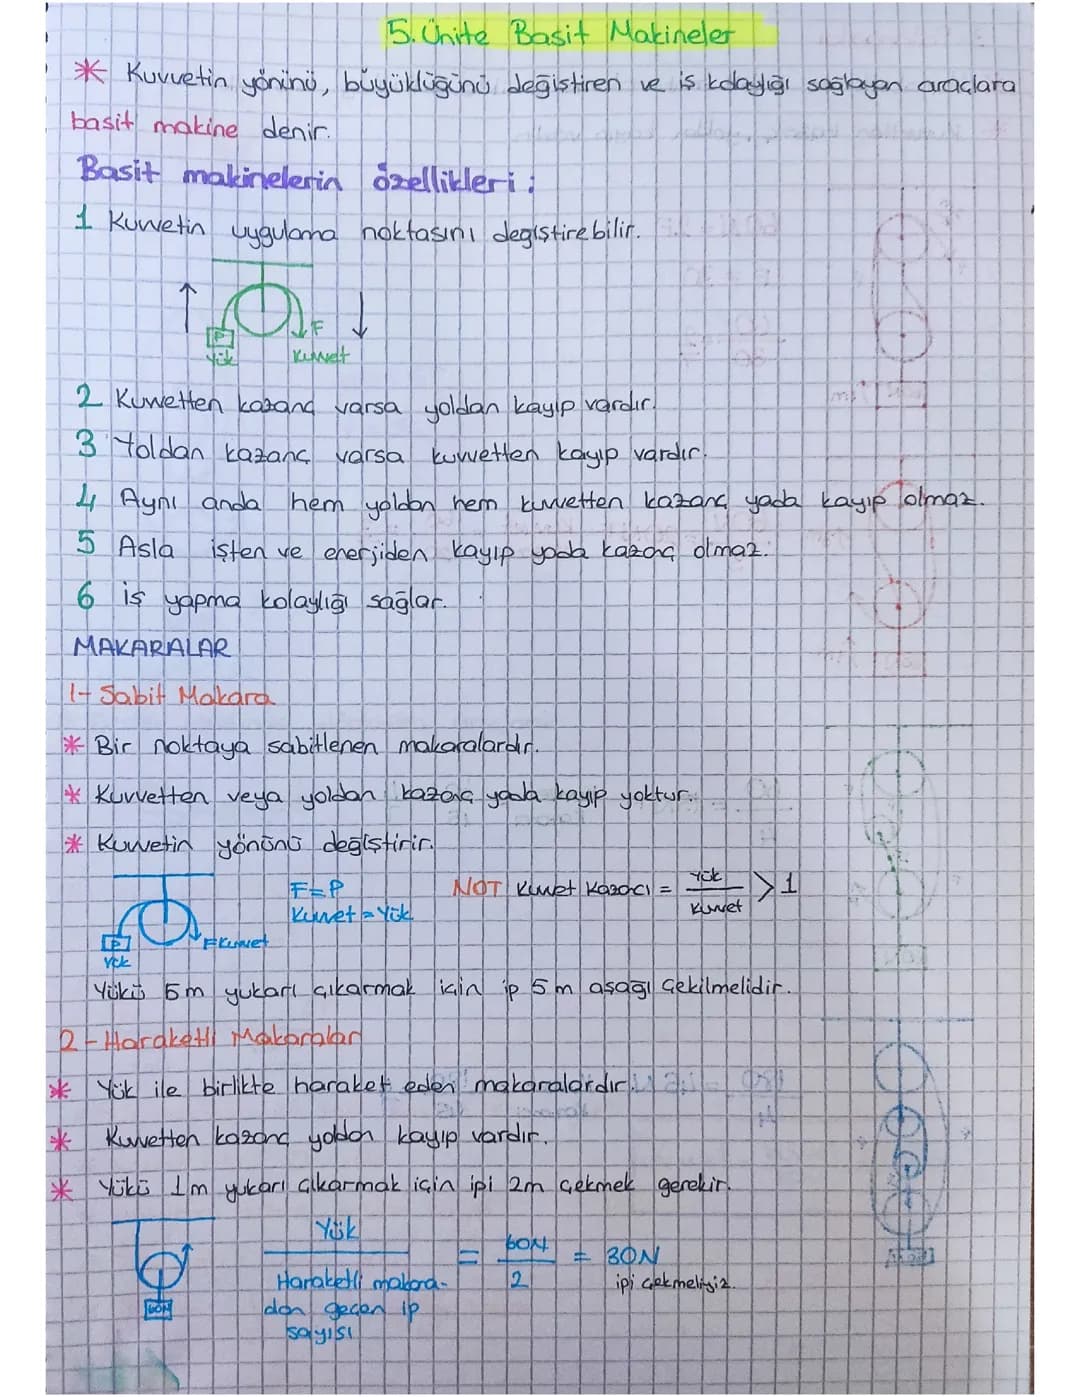 5. Ünite Basit Makineler
* Kuvvetin yönünü, büyüklüğünü değiştiren ve iş kolaylığı sağlayan araçlara
basit makine denir.
Basit makinelerin özellikleri:
1 Kuvvetin uygulama noktasını değiştirebilir.
P
F
Yük
Kuvvet
2 Kuvvetten kazanç varsa yoldan kayıp vardır.
3 Yoldan kazanç varsa kuvvetten kayıp vardır.
4 Aynı anda hem yoldan hem kuvvetten kazanç yada kayıp olmaz.
5 Asla işten ve enerjiden kayıp yada kazanç olmaz.
6 iş yapma kolaylığı sağlar.
MAKARALAR
1- Sabit Makara
* Bir noktaya sabitlenen makaralardır.
* Kuvvetten veya yoldan kazanç yada kayıp yoktur.
* Kuvvetin yönünü değiştirir.
F=P
Kuvvet = Yük
NOT Kuvvet Kazancı = Yük / Kuvvet > 1
P
Yük
F Kuvvet
Yükü 5m yukarı çıkarmak için ip 5m aşağı çekilmelidir.
2- Haraketli Makaralar
* Yük ile birlikte haraket eden makaralardır.
* Kuvvetten kazanç yoldan kayıp vardır.
* Yükü 1m yukarı çıkarmak için ipi 2m çekmek gerekir.
60N
Yük
Haraketli makara-
dan geçen ip
sayısı
= 60N / 2 = 30N
ipi çekmeliyiz.